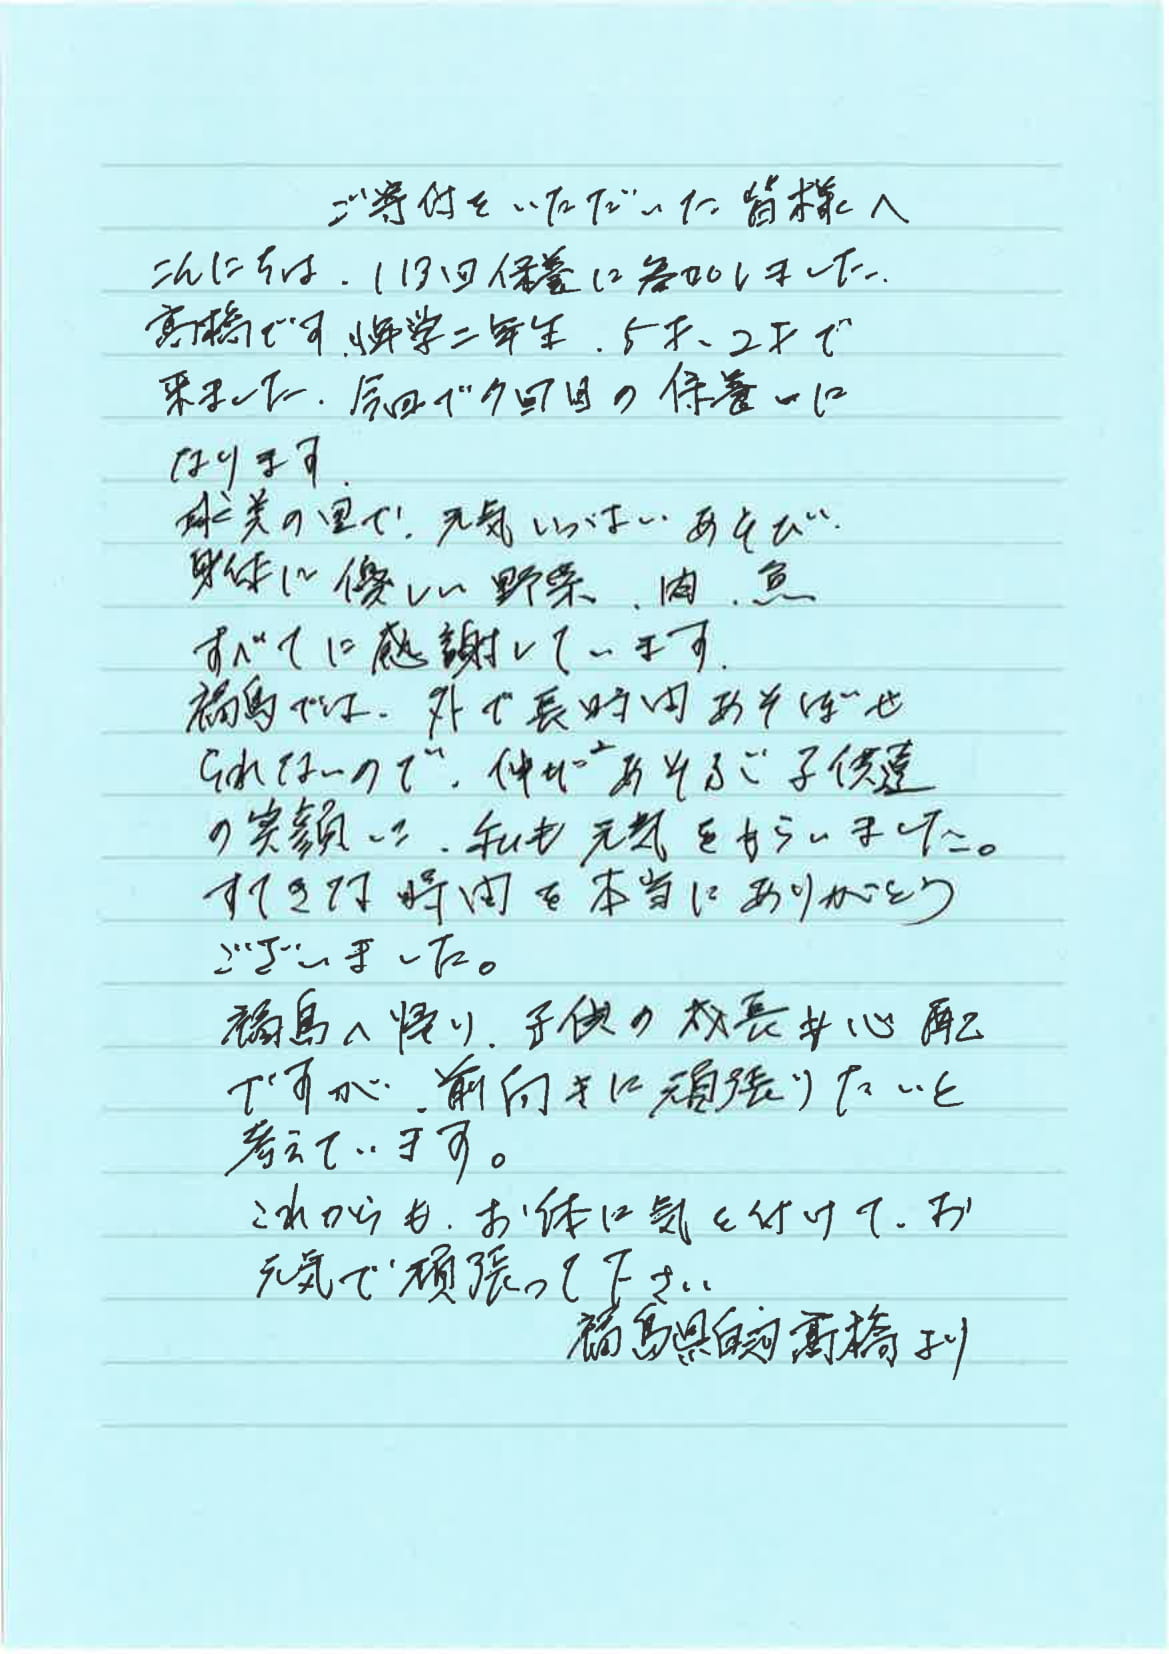 ご寄付をいただいた皆様へ
こんにちは、113回保養に参加しました、
髙橋です、小学二年生、5才、2才で
来ました、今回で7回目の保養に
なります、
球美の里で、元気いっぱいあそび、
身体に優しい野菜、肉、魚
すべてに感謝しています、
福島では、外で長時間あそばせ
られないので、あそるご子供達
の笑顔に、私も元気をもらいました。
すてきな時間を本当にありがとう
ございました。
福島へ帰り、子供の成長も心配
ですが、前向きに頑張りたいと
考えています。
これからも、お体に気を付けて、お
元気で頑張って下さい
福島県白河髙橋より